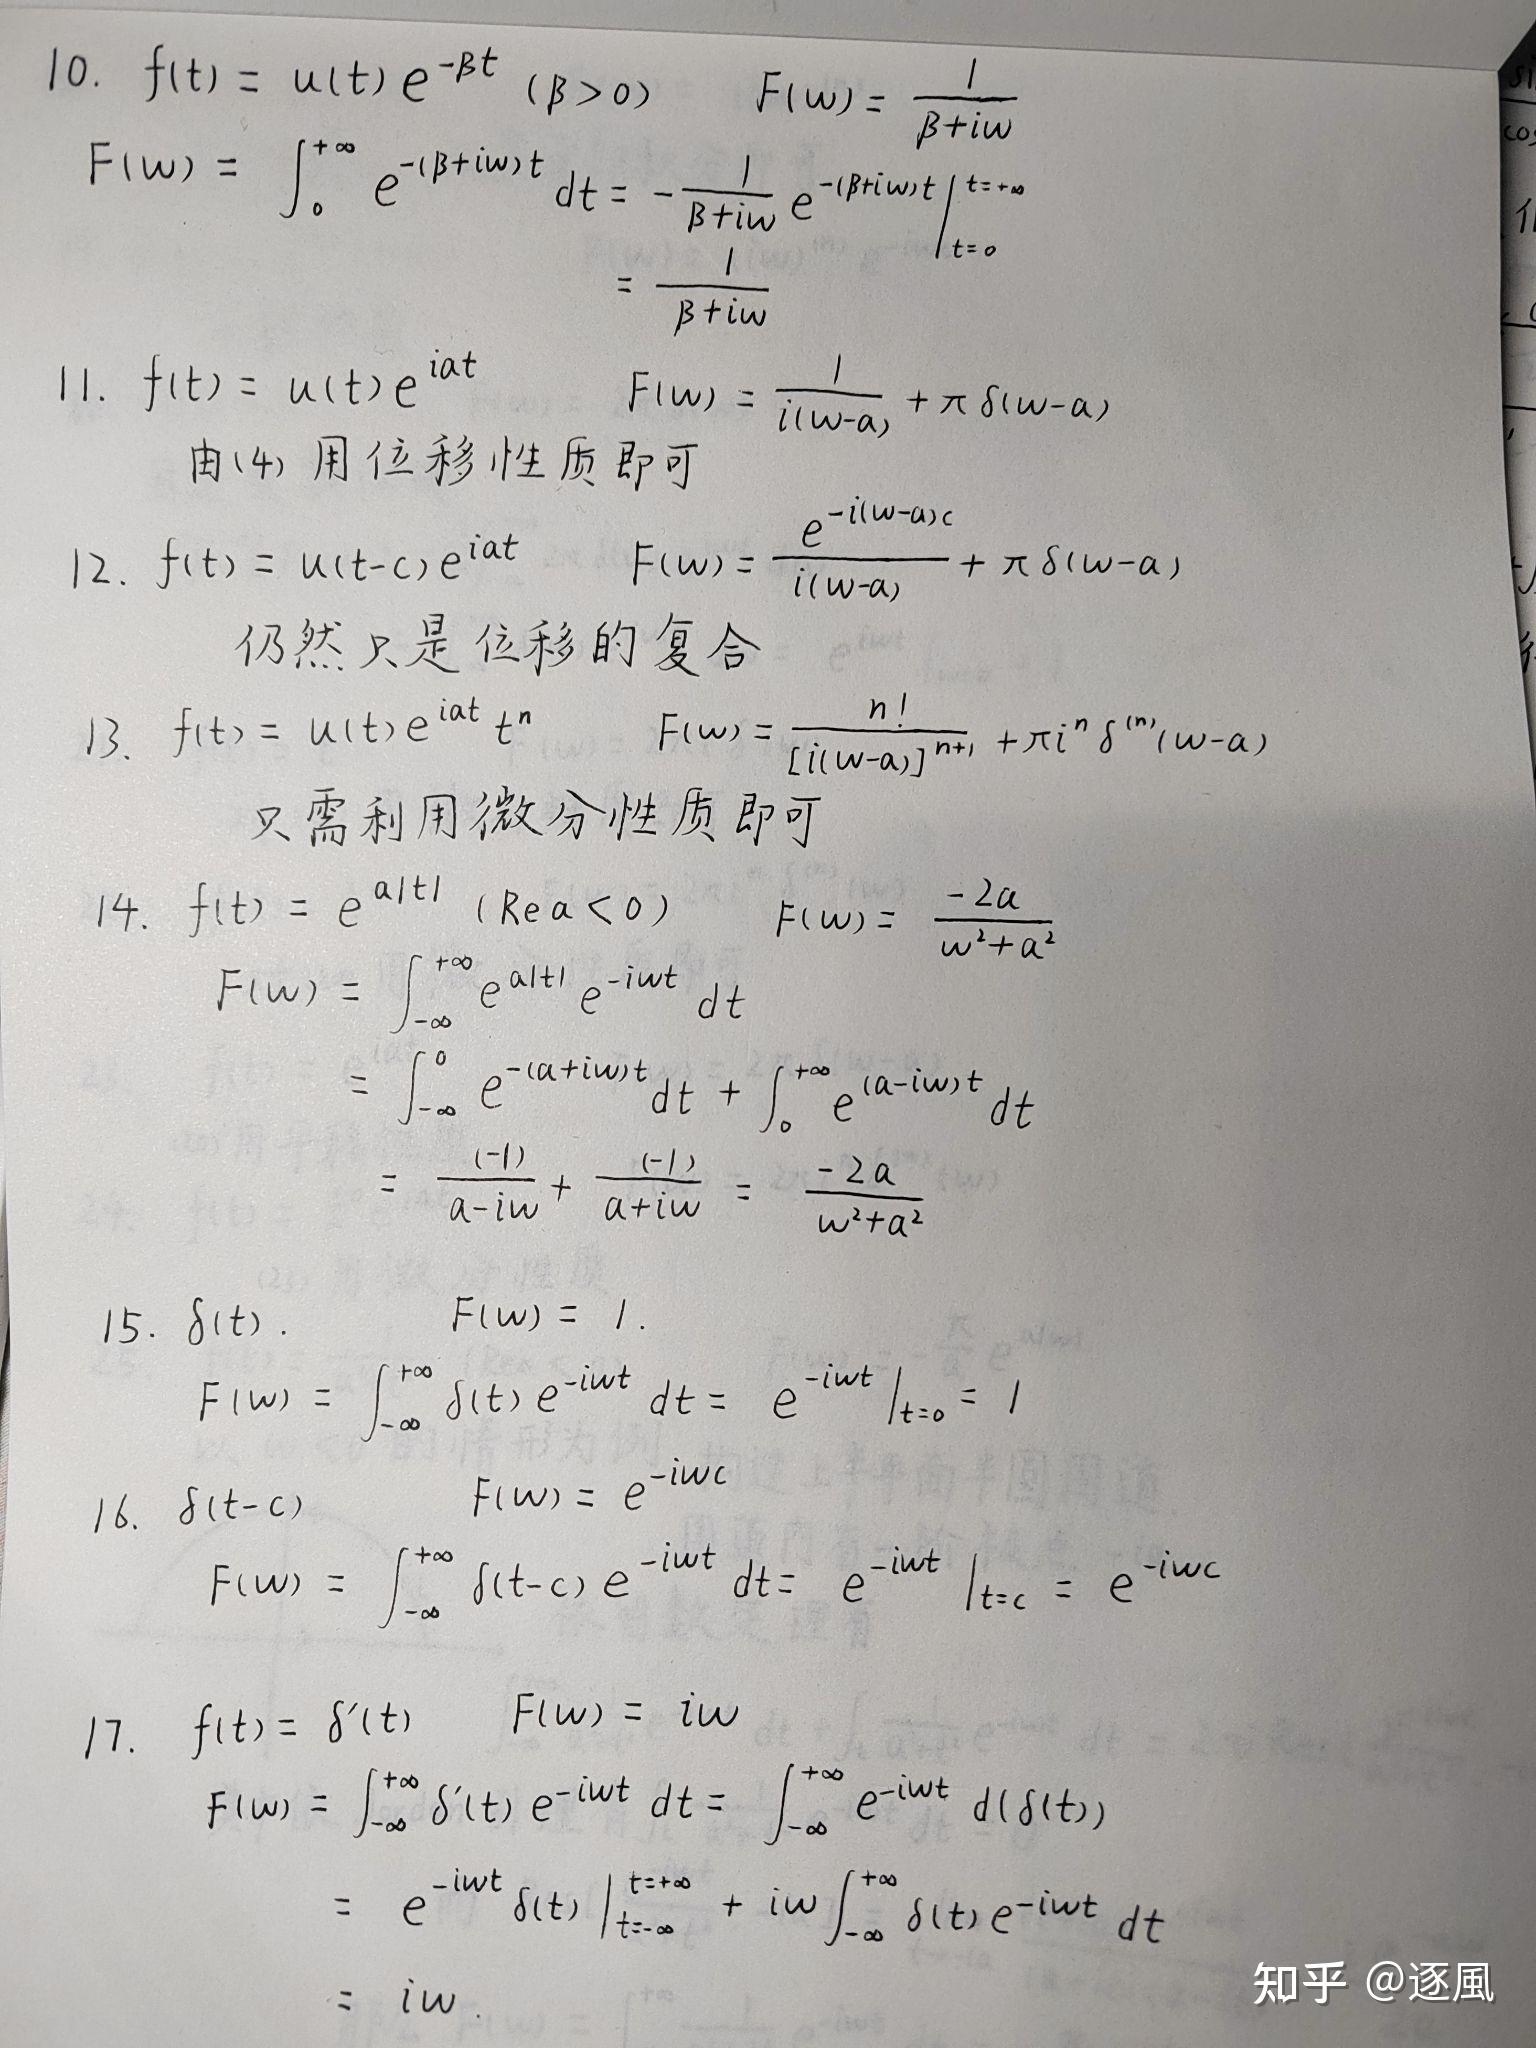 10. f(t) = u(t) e^{-βt} (β>0) F(w) = \frac{1}{β+iw}
F(w) = ∫_0^{+∞} e^{-(β+iw)t} dt = -\frac{1}{β+iw} e^{-(β+iw)t} |_{t=0}^{t=+∞}
= \frac{1}{β+iw}
11. f(t) = u(t) e^{iat} F(w) = \frac{1}{i(w-a)} + π δ(w-a)
由(4) 用位移性质即可
12. f(t) = u(t-c) e^{iat} F(w) = \frac{e^{-i(w-a)c}}{i(w-a)} + π δ(w-a)
仍然只是位移的复合
13. f(t) = u(t) e^{iat} t^n F(w) = \frac{n!}{[i(w-a)]^{n+1}} + π i^n δ^{(n)}(w-a)
只需利用微分性质即可
14. f(t) = e^{a|t|} (Re a < 0) F(w) = \frac{-2a}{w^2+a^2}
F(w) = ∫_{-∞}^{+∞} e^{a|t|} e^{-iwt} dt
= ∫_{-∞}^0 e^{-(a+iw)t} dt + ∫_0^{+∞} e^{(a-iw)t} dt
= \frac{(-1)}{a-iw} + \frac{(-1)}{a+iw} = \frac{-2a}{w^2+a^2}
15. δ(t). F(w) = 1.
F(w) = ∫_{-∞}^{+∞} δ(t) e^{-iwt} dt = e^{-iwt} |_{t=0} = 1
16. δ(t-c) F(w) = e^{-iwc}
F(w) = ∫_{-∞}^{+∞} δ(t-c) e^{-iwt} dt = e^{-iwt} |_{t=c} = e^{-iwc}
17. f(t) = δ'(t) F(w) = iw
F(w) = ∫_{-∞}^{+∞} δ'(t) e^{-iwt} dt = ∫_{-∞}^{+∞} e^{-iwt} d(δ(t))
= e^{-iwt} δ(t) |_{t=-∞}^{t=+∞} + iw ∫_{-∞}^{+∞} δ(t) e^{-iwt} dt
= iw.
知乎 @逐風